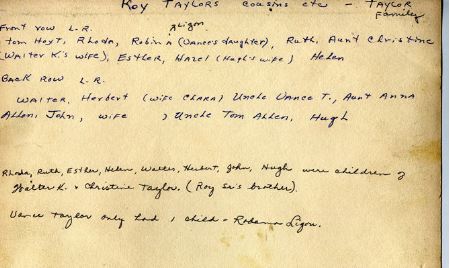 Roy Taylors cousins etc – Taylor Family
Front row L.R. Ligon
Tom Hoyt, Rhoda, Robina ^ (Vance's daughter), Ruth, Aunt Christine
(Walter K's wife), Estler, Hazel (Hugh's wife) Helen
Back Row L.R.
Walter, Herbert (wife Clara) Uncle Vance T., Aunt Anna
Allen, John, wife ) Uncle Tom Allen, Hugh
Rhoda, Ruth, Esther, Helen, Walter, Herbert, John, Hugh were children of
Walter K. & Christine Taylor. (Roy Sr's brother).
Vance Taylor only had 1 child – Ligon.